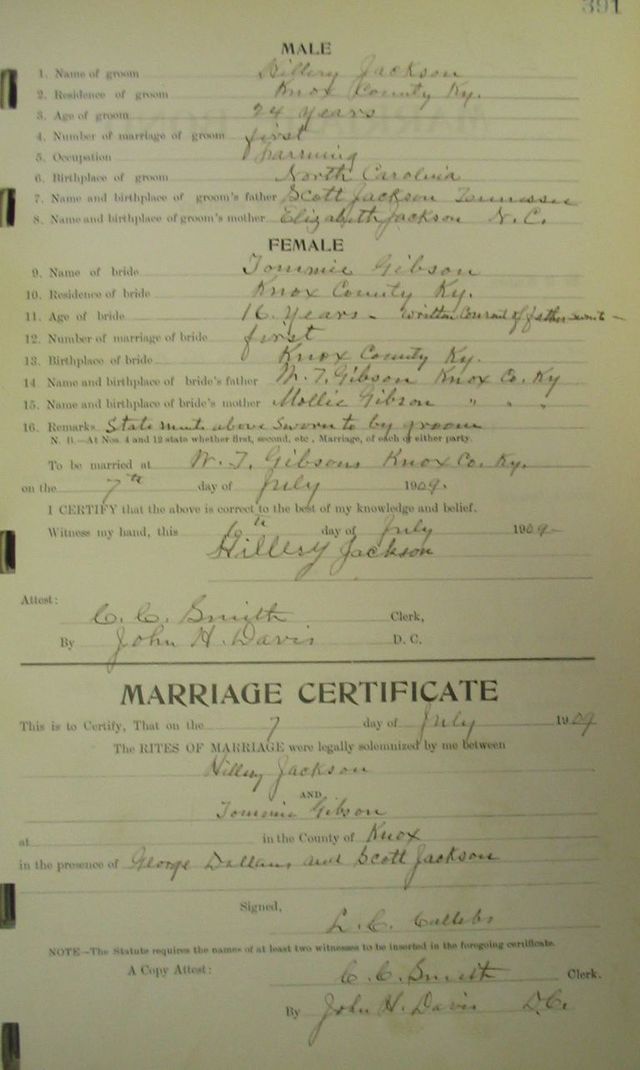 391
MALE
1. Name of groom Hillery Jackson
2. Residence of groom Knox County Ky.
3. Age of groom 24 years
4. Number of marriage of groom first
5. Occupation Farming
6. Birthplace of groom North Carolina
7. Name and birthplace of groom's father Scott Jackson Tennessee
8. Name and birthplace of groom's mother Elizabeth Jackson N. C.
FEMALE
9. Name of bride Tommie Gibson
10. Residence of bride Knox County Ky.
11. Age of bride 16 years - written consent of father
12. Number of marriage of bride first
13. Birthplace of bride Knox County Ky.
14. Name and birthplace of bride's father W. T. Gibson Knox Co. Ky
15. Name and birthplace of bride's mother Mollie Gibson " " "
16. Remarks Statements above sworn to by groom
N. B.—At Nos. 4 and 12 state whether first, second, etc., Marriage, of each of either party.
To be married at W. T. Gibsons Knox Co. Ky.
on the 7th day of July 1909.
I CERTIFY that the above is correct to the best of my knowledge and belief.
Witness my hand, this 6th day of July 1909
Hillery Jackson
Attest:
C. C. Smith Clerk,
By John H. Davis D. C.
MARRIAGE CERTIFICATE
This is to Certify, That on the 7 day of July 1909
The RITES OF MARRIAGE were legally solemnized by me between
Hillery Jackson
AND
Tommie Gibson
at in the County of Knox
in the presence of George and Scott Jackson
Signed,
L. C.
NOTE—The Statute requires the names of at least two witnesses to be inserted in the foregoing certificate.
A Copy Attest: C. C. Smith Clerk.
By John H. Davis D.C.